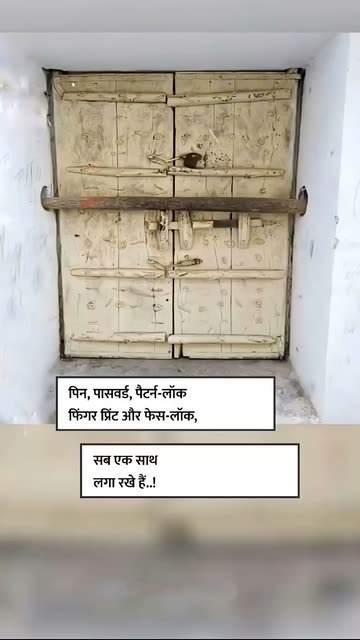 पिन, पासवर्ड, पैटर्न-लॉक
फिंगर प्रिंट और फेस-लॉक,
सब एक साथ
लगा रखे हैं..!